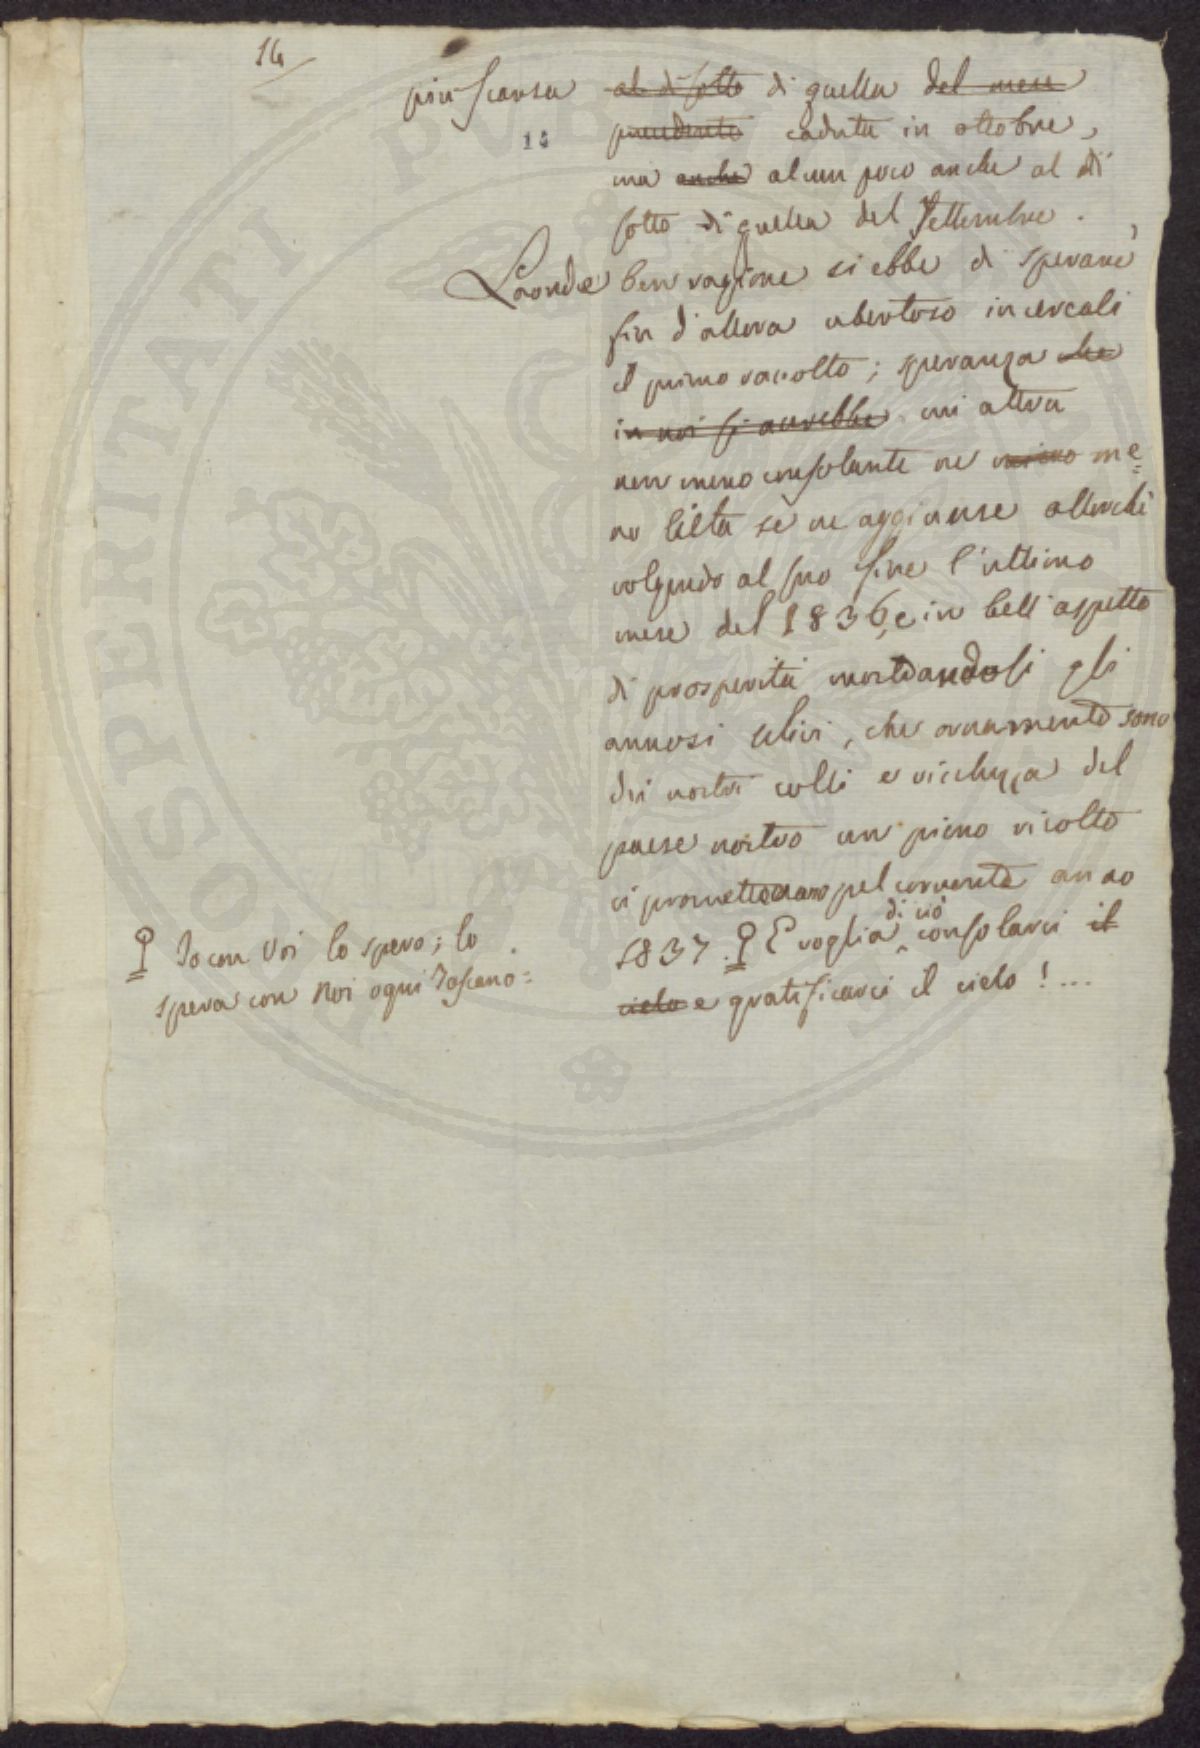 14
più scarsa al di sotto di quella del mese
precedente caduta in ottobre,
14
ma anche alcun poco anche al di
sotto di quella del Settembre.
Laonde ben ragione si ebbe di sperare
fin d'allora ubertoso in cereali
il primo raccolto; speranza che
in noi si accrebbe cui altra
non meno consolante ne meno me=
no lieta se ne aggiunse allorchè
volgendo al suo fine l'ultimo
mese del 1836, e in bell'aspetto
di prosperità mostrandosi gli
annosi ulivi, che ornamento sono
dei nostri colli e ricchezza del
paese nostro un pieno ricolto
ci promettevano pel corrente anno
1837. E voglia di ciò consolarci il
cielo e gratificarci il cielo!...
Io con Voi lo spero; lo
spera con Noi ogni Toscano:
PROSPERITATI PUBLICAE